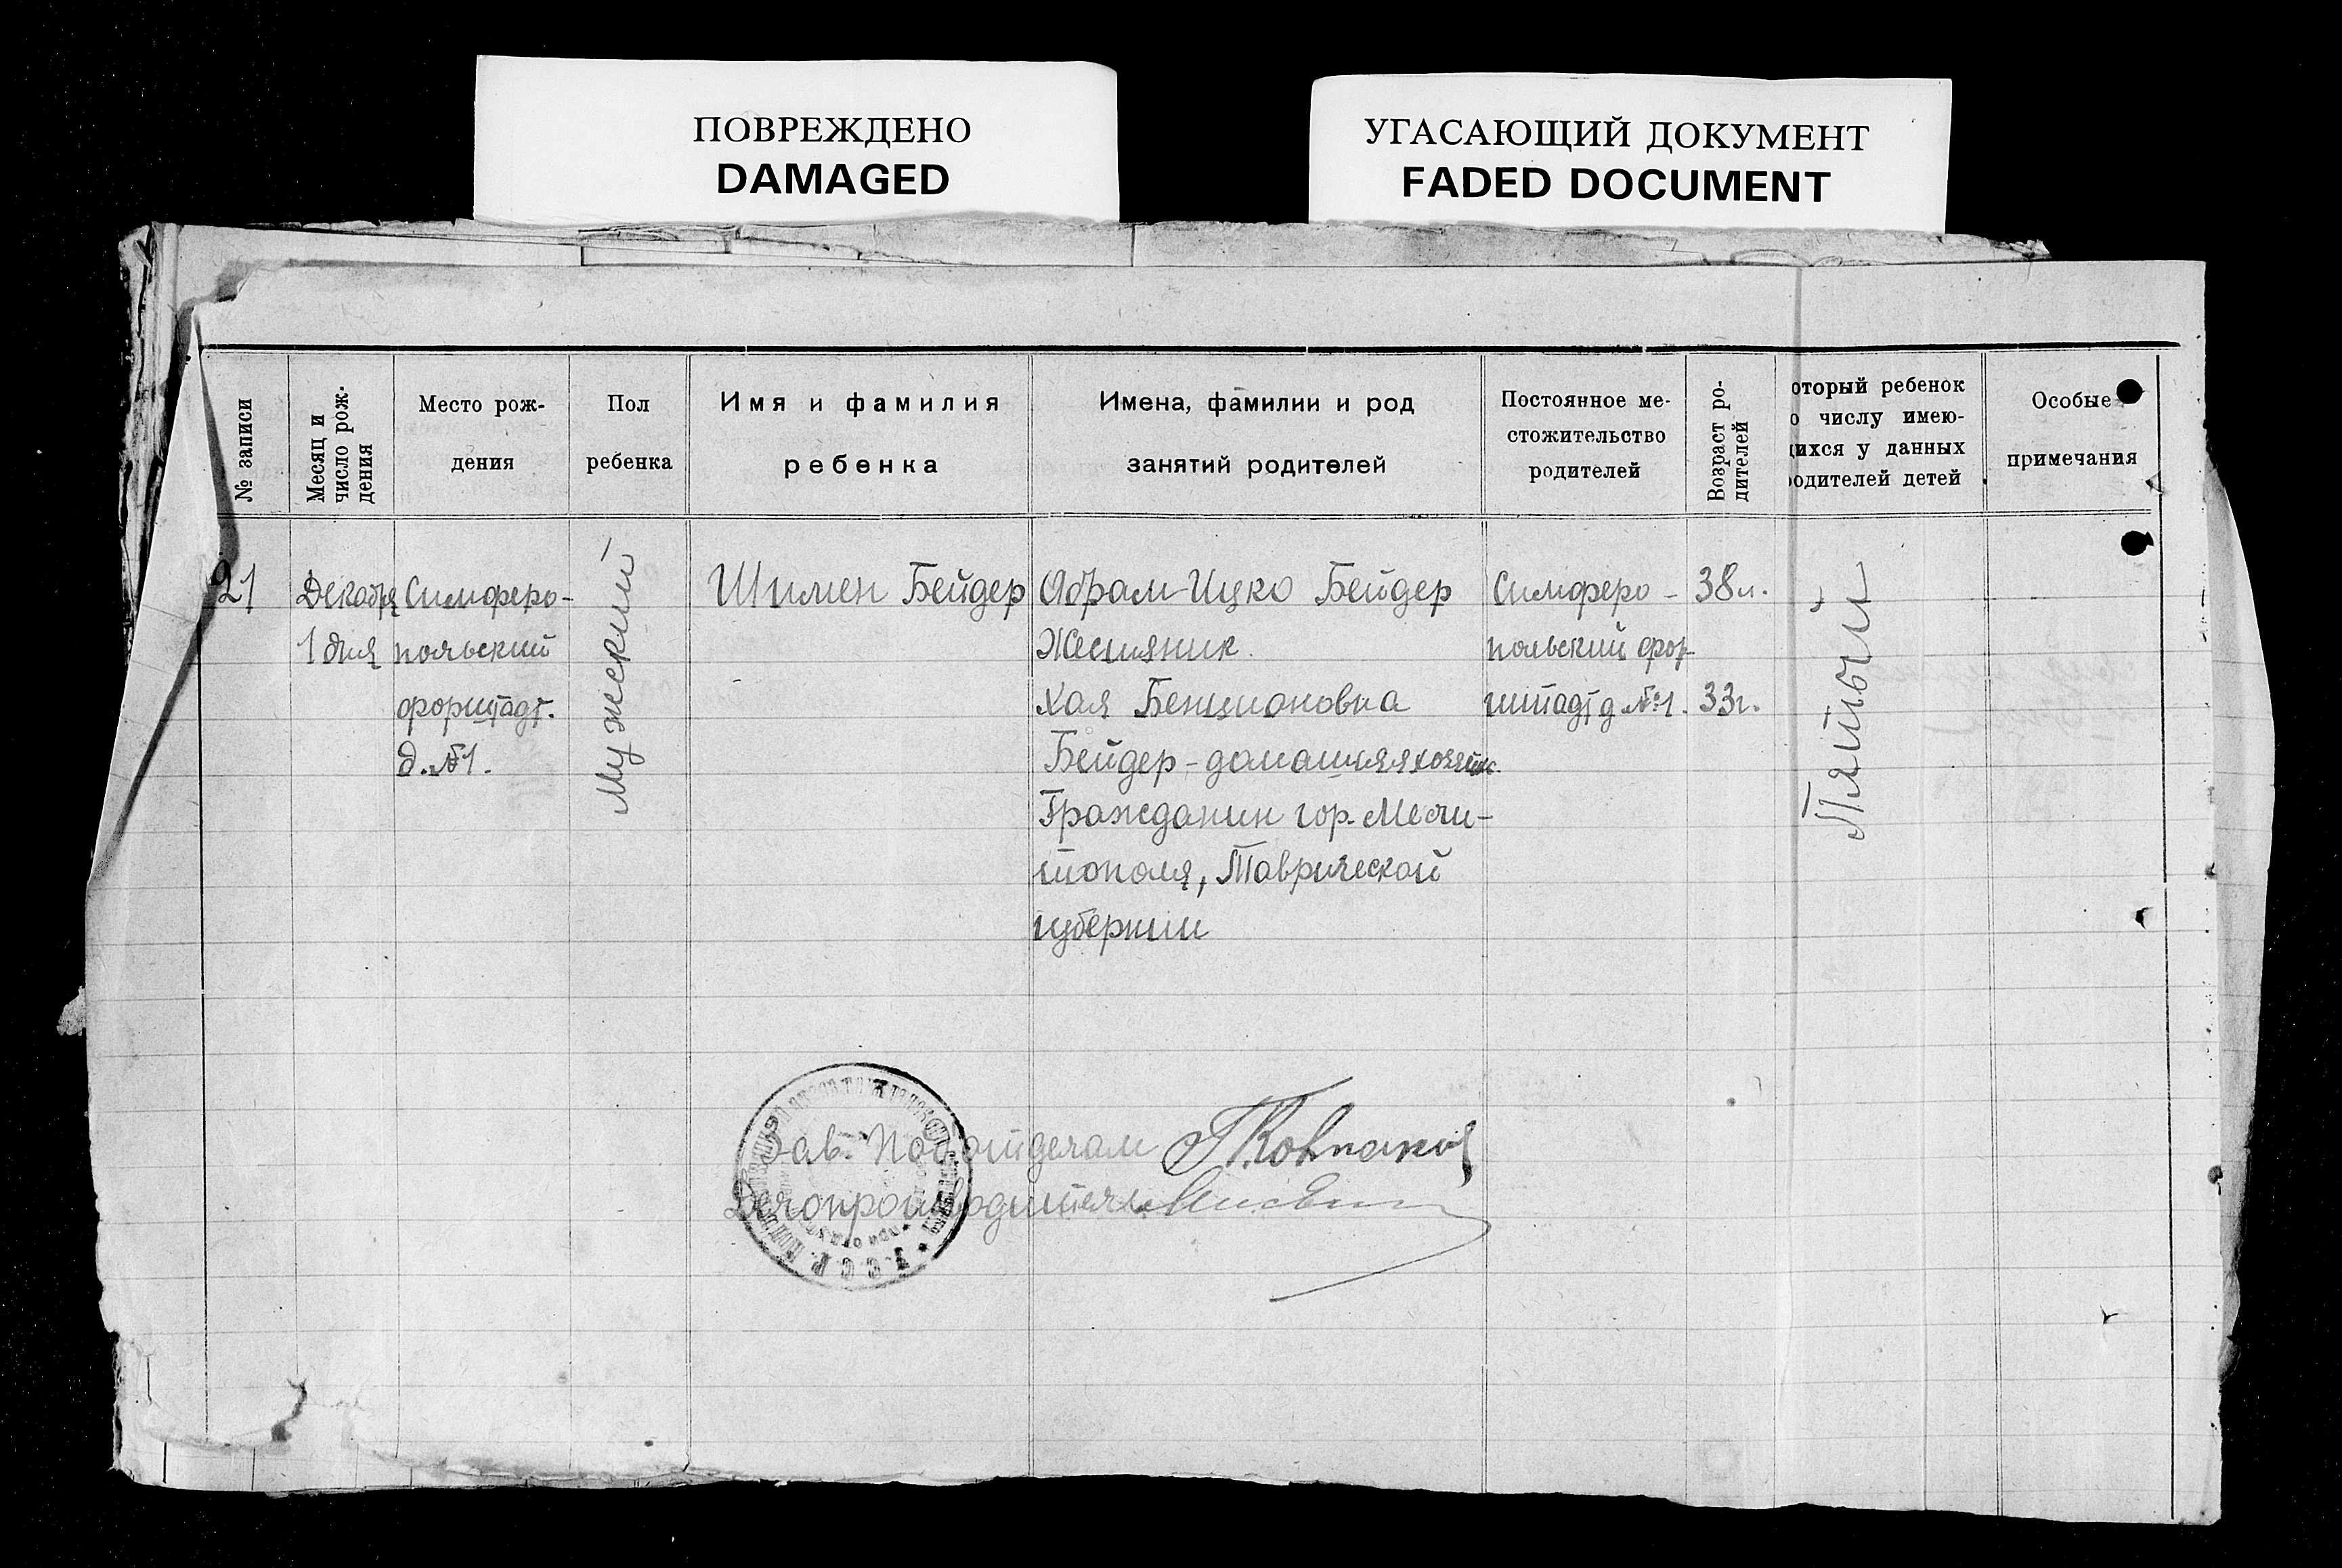 ПОВРЕЖДЕНО
DAMAGED
УГАСАЮЩИЙ ДОКУМЕНТ
FADED DOCUMENT
№ записи
Месяц и
число рож-
дения
Место рож-
дения
Пол
ребенка
Имя и фамилия
ребенка
Имена, фамилии и род
занятий родителей
Постоянное ме-
стожительство
родителей
Возраст ро-
дителей
оторый ребенок
о числу имею-
щихся у данных
родителей детей
Особые
примечания
21
Декабря
1 дня
Симферо-
польский
форштадт.
д. №1.
Мужской
Шимен Бейдер
Абрам-Ицко Бейдер
Жестяник.
Хая Бенционовна
Бейдер - домашняя хозяйк.
Гражданин гор. Мели-
тополя, Таврической
губернии
Симферо-
польский фор-
штадт д №1.
38 л.
33 г.
Пятый
Зав. Подотделам
Делопроизводитель